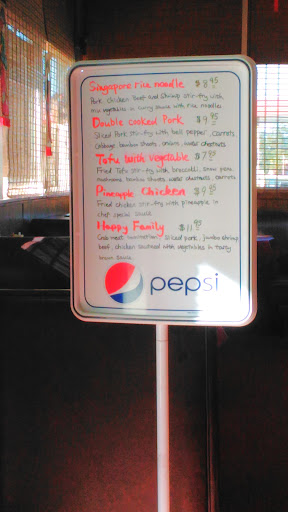 Singapore rice noodle $8.95
Pork Chicken Beef and Shrimp stir-fry with
mix vegetables in curry sauce with rice noodles
Double cooked Pork $9.95
Sliced Pork stir-fry with bell pepper, carrots
Cabbage, bamboo shoots, onions, water chestnuts
Tofu with vegetable $7.95
Fried Tofu stir-fry with broccoli, snow peas
mushrooms, bamboo shoots, water chestnuts, carrots
Pineapple Chicken $9.95
Fried chicken stir-fry with pineapple in
chef special sauce
Happy Family $11.95
Crab meat, sliced pork, jumbo shrimp
beef, chicken sauteed with vegetables in tasty
brown sauce
pepsi